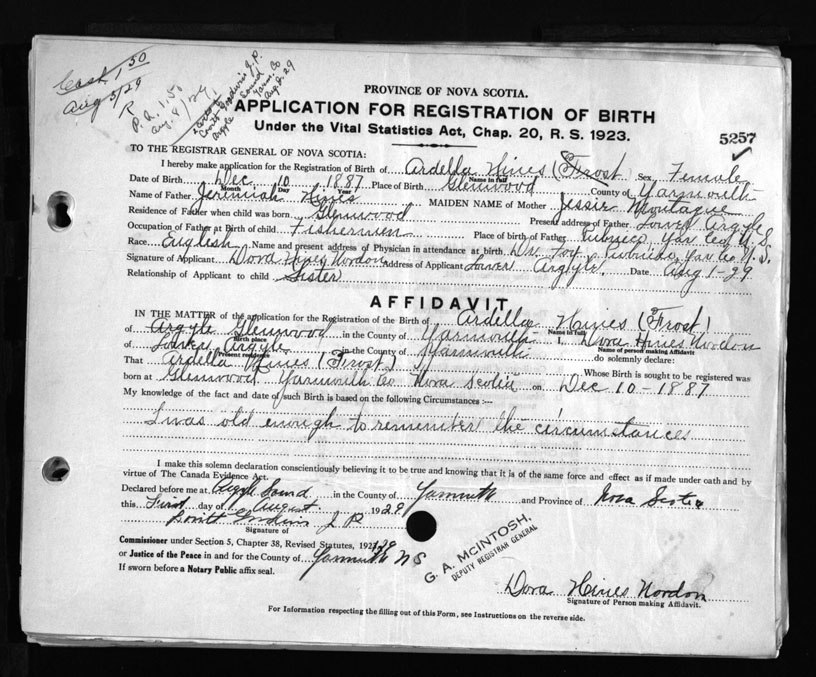 Cash 1.50
Aug 5/29
R
P.R. 1.50
Aug. 8/29
Scott Goodwin J.P.
Argyle Sound
Yarm. Co
Aug. 2. 29
PROVINCE OF NOVA SCOTIA.
APPLICATION FOR REGISTRATION OF BIRTH
Under the Vital Statistics Act, Chap. 20, R. S. 1923.
5257
TO THE REGISTRAR GENERAL OF NOVA SCOTIA:
I hereby make application for the Registration of Birth of Ardella Hines (Frost Sex Female
Name in full
Date of Birth Dec 10 1887 Place of Birth Glenwood County of Yarmouth
Month Day Year
Name of Father Jeremiah Hines MAIDEN NAME of Mother Jessie Montague
Residence of Father when child was born Glenwood Present address of Father Lower Argyle
Occupation of Father at Birth of child Fishermen Place of birth of Father Yar Co N.S.
Race English Name and present address of Physician in attendance at birth Dr. Yar Co N.S.
Signature of Applicant Dora Hines Nordon Address of Applicant Lower Argyle Date Aug 1-29
Relationship of Applicant to child Sister
AFFIDAVIT
IN THE MATTER of the application for the Registration of the Birth of Ardella Hines (Frost)
Name in full
of Argyle Glenwood in the County of Yarmouth I, Dora Hines Nordon
Birth place Name of person making Affidavit
of Lower Argyle in the County of Yarmouth do solemnly declare:
Present residence
That Ardella Hines (Frost) Whose Birth is sought to be registered was
born at Glenwood Yarmouth Co Nova Scotia on Dec 10-1887
My knowledge of the fact and date of such Birth is based on the following Circumstances :—
I was old enough to remember the circumstances
I make this solemn declaration conscientiously believing it to be true and knowing that it is of the same force and effect as if made under oath and by
virtue of The Canada Evidence Act.
Declared before me at Argyle Sound in the County of Yarmouth and Province of Nova Scotia
this First day of August 1929
Scott Goodwin J P
Signature of
Commissioner under Section 5, Chapter 38, Revised Statutes,
or Justice of the Peace in and for the County of Yarmouth N S
If sworn before a Notary Public affix seal.
G. A. McINTOSH,
DEPUTY REGISTRAR GENERAL
Dora Hines Nordon
Signature of Person making Affidavit.
For Information respecting the filling out of this Form, see Instructions on the reverse side.